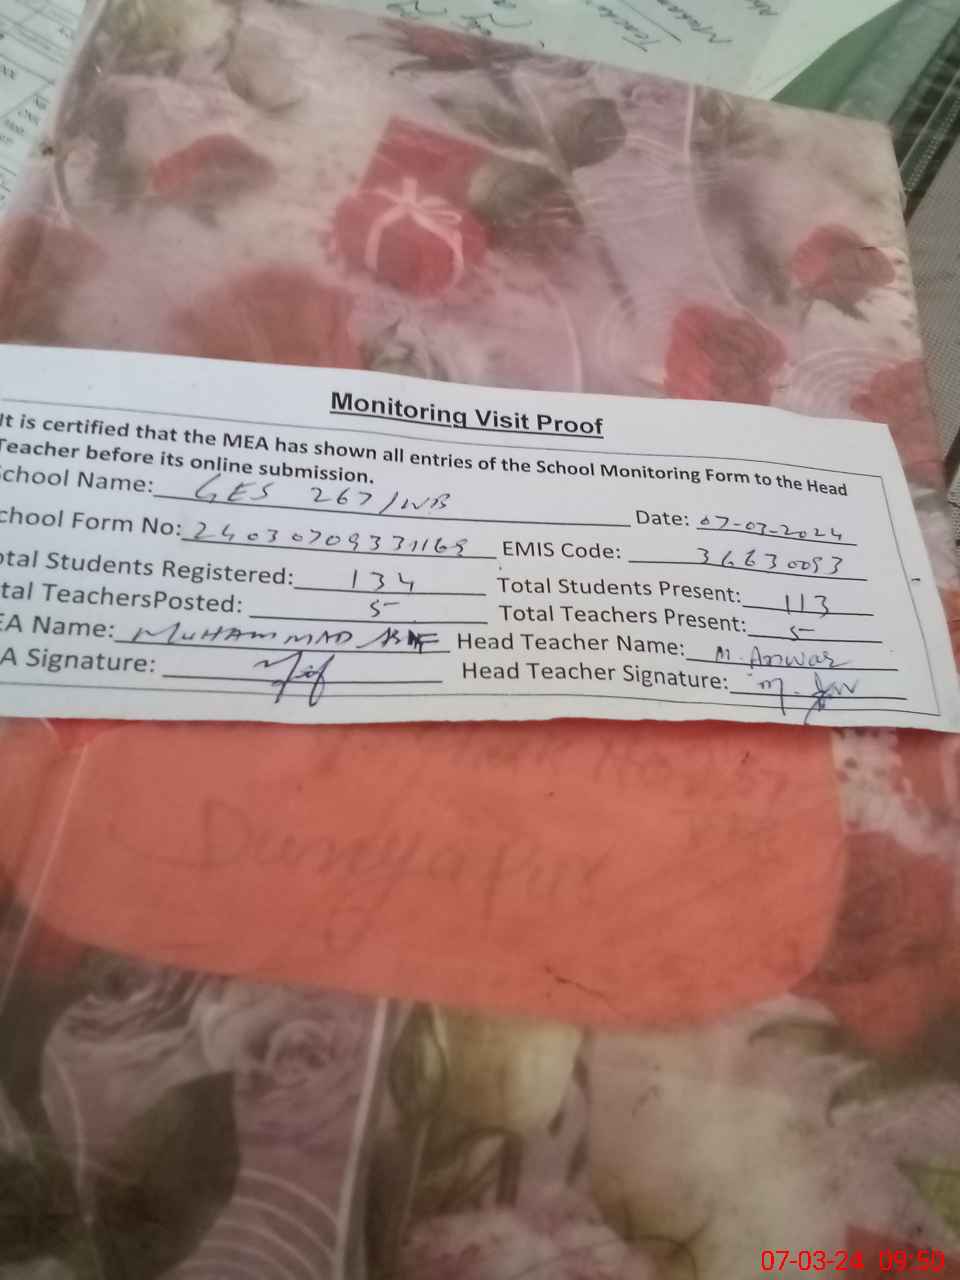 Monitoring Visit Proof
It is certified that the MEA has shown all entries of the School Monitoring Form to the Head
Teacher before its online submission.
chool Name: GES 267/WB Date: 07-03-2024
chool Form No: 24030709331169 EMIS Code: 36630093
otal Students Registered: 134 Total Students Present: 113
tal TeachersPosted: 5 Total Teachers Present: 5
EA Name: MUHAMMAD Head Teacher Name: M. Anwar
A Signature: Head Teacher Signature:
Dunyapur
07-03-24 09:50